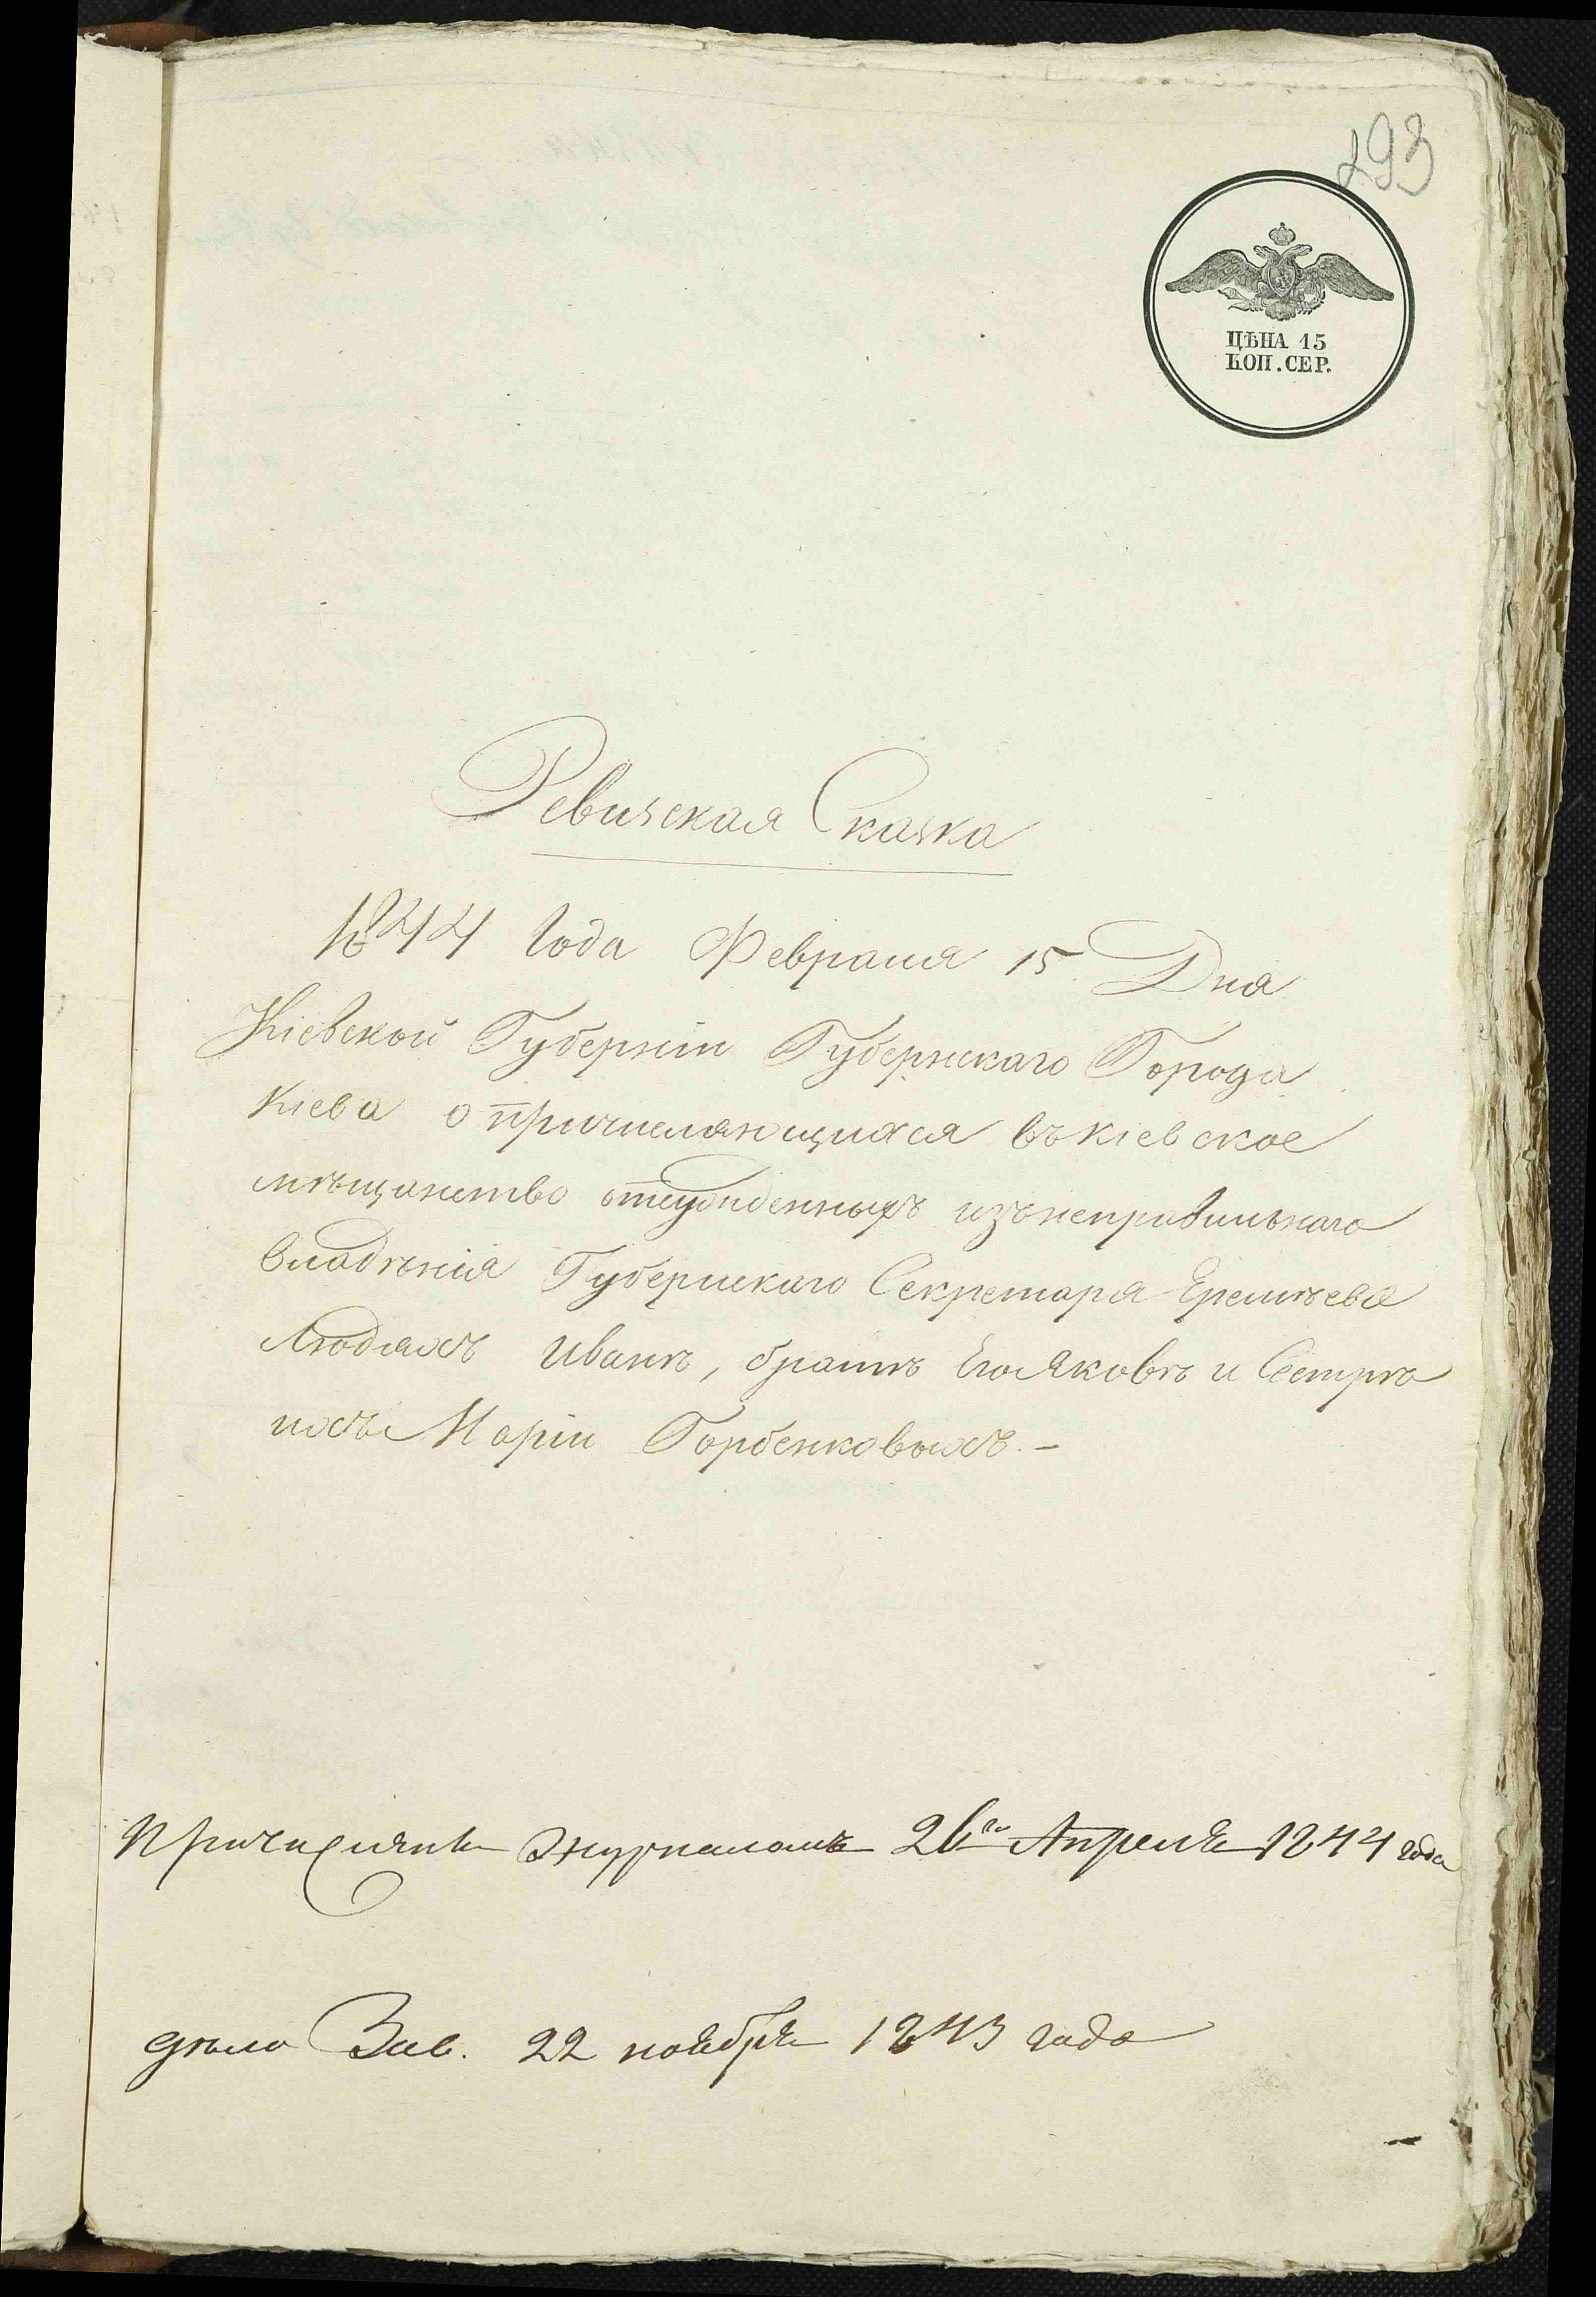 293
ЦѢНА 15
КОП. СЕР.
Ревизская Сказка
1844 Года Февраля 15 Дня
Кіевской Губерніи Губернскаго Города
Кіева о причисляющихся въ кіевское
мѣщанство отсужденныхъ изъ неправильнаго
владѣнія Губернскаго Секретаря Еремѣева
людяхъ Иванѣ, братѣ Его Яковѣ и Сестрѣ
ихъ Маріи Горбенковыхъ. –
Причислены Журналомъ 26го Апреля 1844 года
дѣло Зав. 22 ноября 1843 года